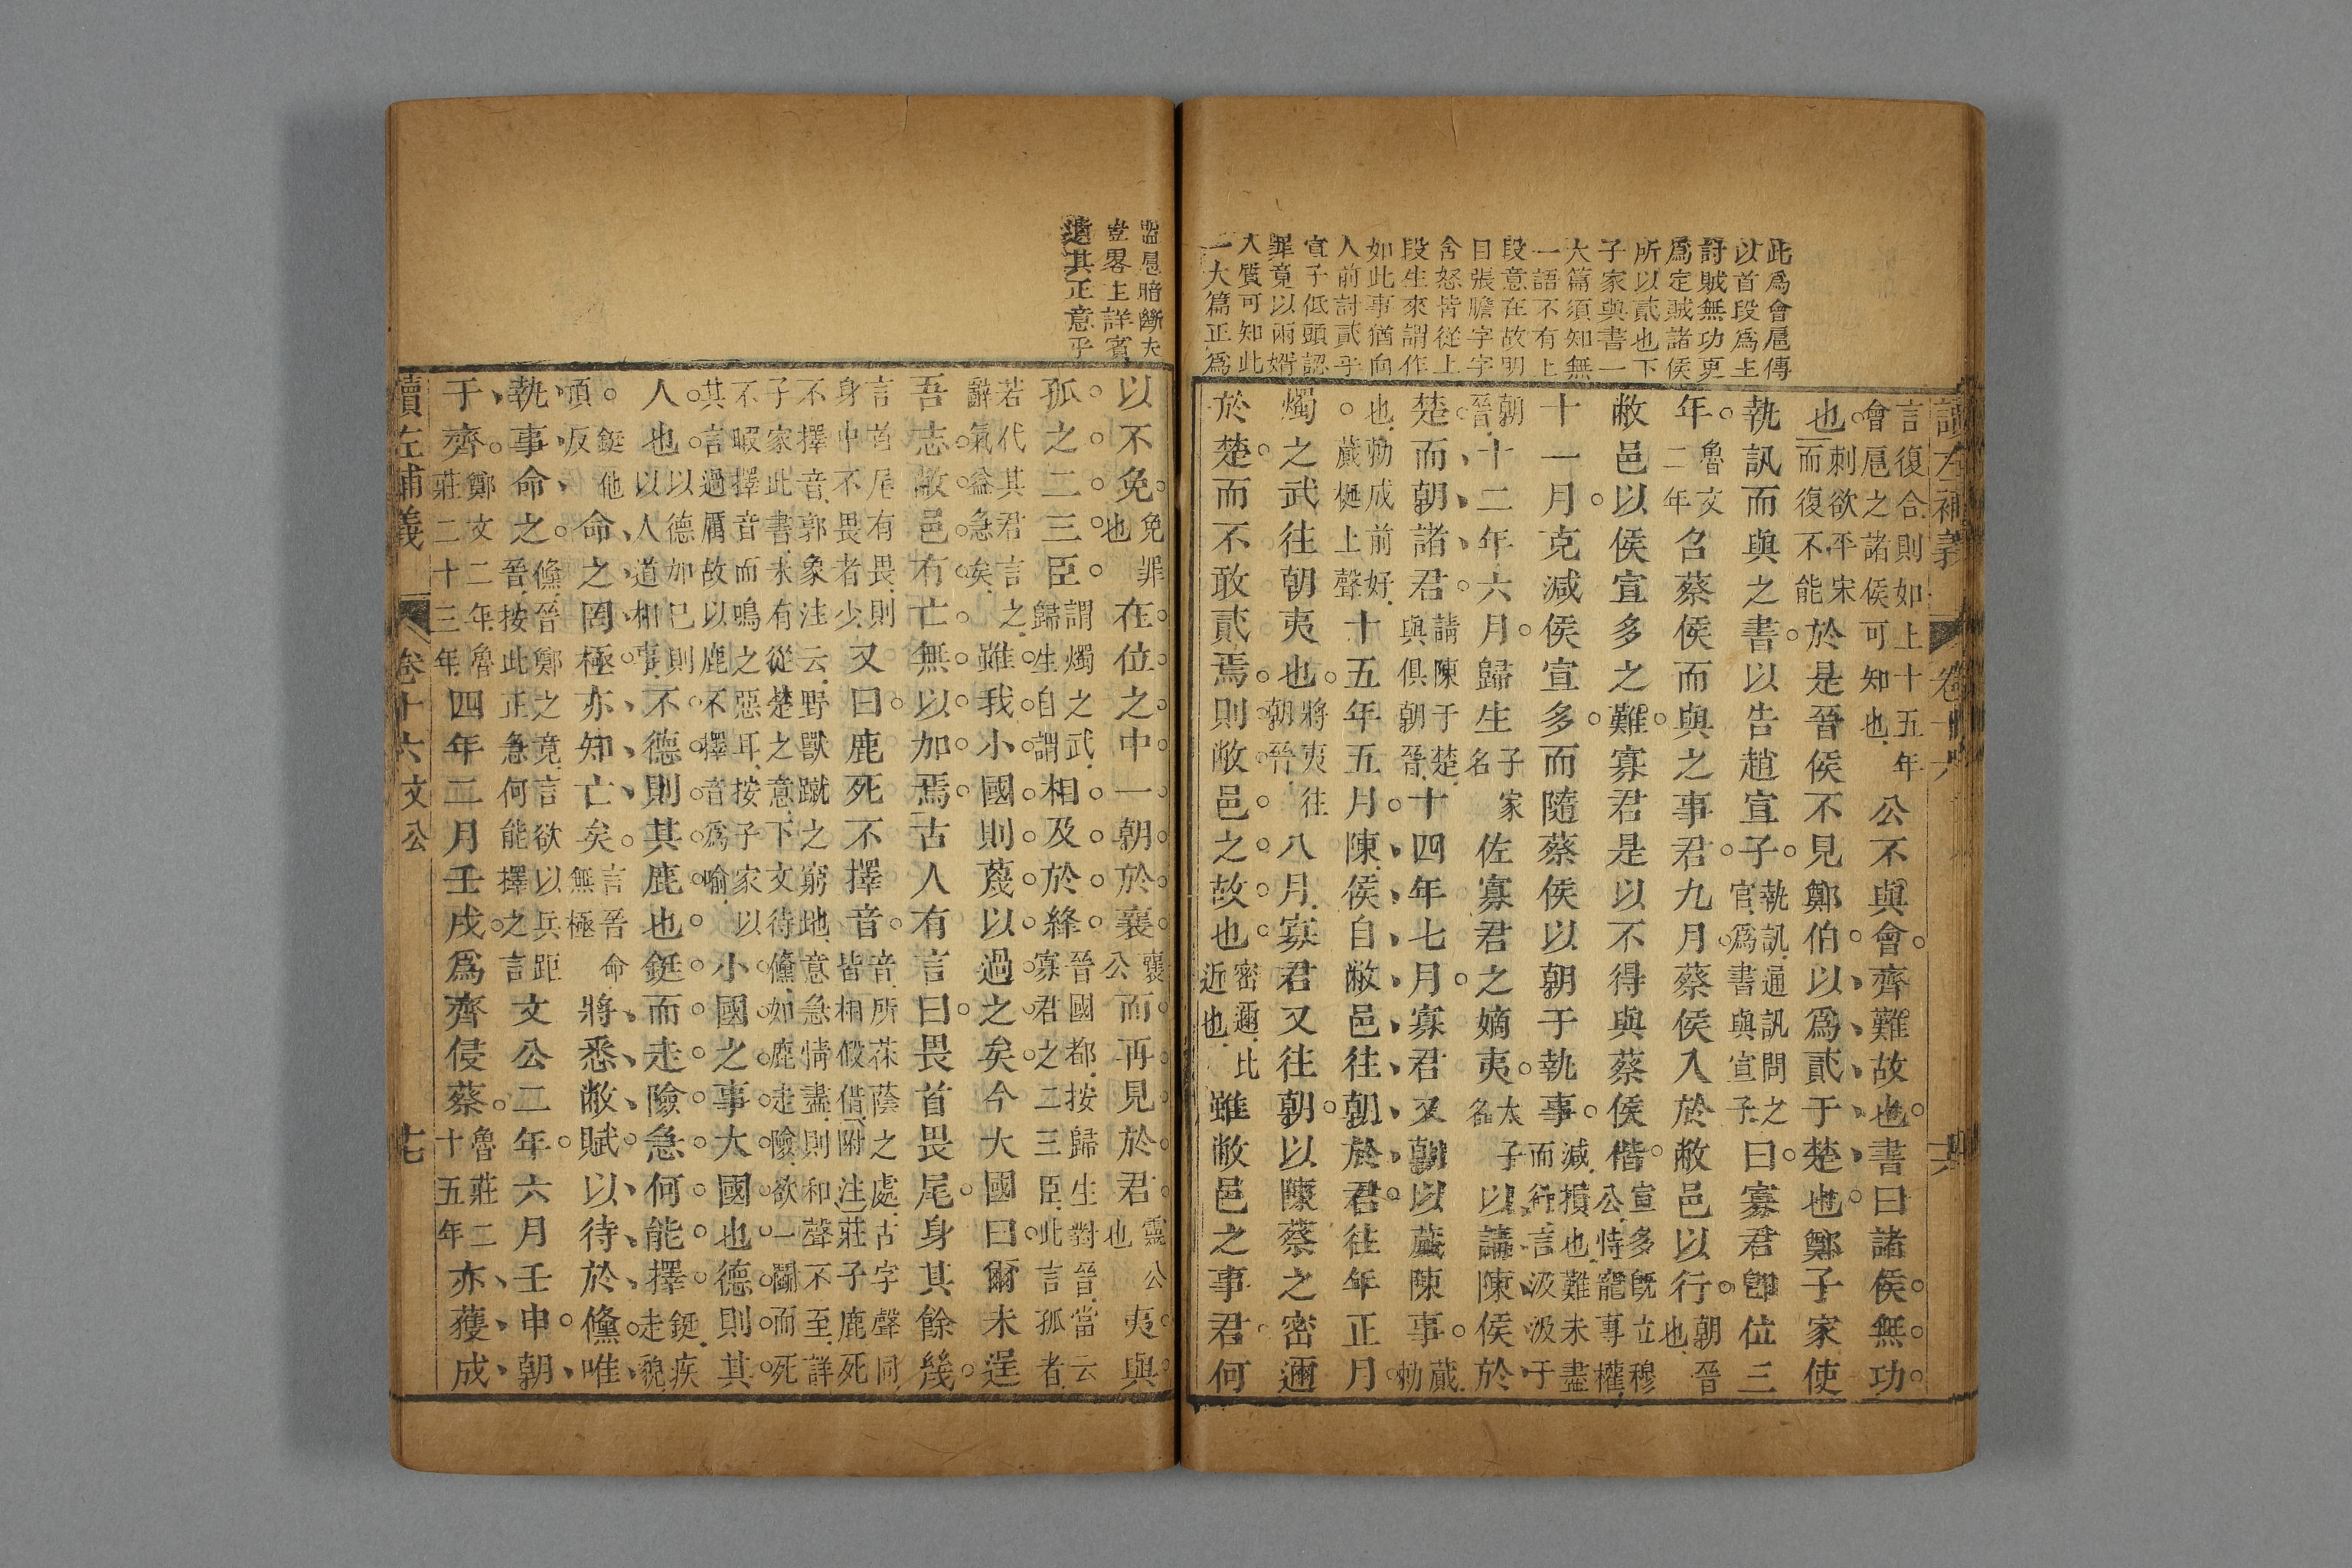 此爲會扈傳
以首段爲主
討賊無功更
爲定賊諸侯
所以貳也下
子家與書一
大篇須知無
一語不有上
段意在故明
目張膽字字
含怒皆從上
段生來謂作
如此事猶向
人前討貳乎
宣子低頭認
罪竟以兩婿
大質可知此
一大篇正爲
讀左補義 卷十六 六
言復合則如上十五年會扈之諸侯可知也公不與會齊難故也書曰諸侯無功
也刺欲平宋而復不能於是晉侯不見鄭伯以爲貳于楚也鄭子家使
執訊而與之書以告趙宣子執訊通訊問之官爲書與宣子曰寡君卽位三
年魯文二年召蔡侯而與之事君九月蔡侯入於敝邑以行朝晉也
敝邑以侯宣多之難寡君是以不得與蔡侯偕宣多旣立穆公恃寵專權
十一月克減侯宣多而隨蔡侯以朝于執事減損也難未盡而行言汲汲于
朝晉十二年六月歸生子家名佐寡君之嫡夷太子名以請陳侯於
楚而朝諸君請陳于楚與俱朝晉十四年七月寡君又朝以蕆陳事蕆勑
也勑成前好蕆梴上聲十五年五月陳侯自敝邑往朝於君往年正月
燭之武往朝夷也將夷往朝晉八月寡君又往朝以陳蔡之密邇
於楚而不敢貳焉則敝邑之故也密邇比近也雖敝邑之事君何
盟扈暗斷夫
豈畧主詳賓
遺其正意乎
以不免免罪也在位之中一朝於襄襄公而再見於君靈公也夷與
孤之二三臣謂燭之武歸生自謂相及於絳晉國都按歸生對晉當云寡君之二三臣此言孤者
若代其君言之辭氣益急矣雖我小國則蔑以過之矣今大國曰爾未逞
吾志敝邑有亡無以加焉古人有言曰畏首畏尾身其餘幾
言首尾有畏則身中不畏者少又曰鹿死不擇音音所茠蔭之處古字聲同皆相假借附注莊子鹿死
不擇音郭象注云野獸蹴之窮地意急情盡則和聲不至詳子家此書未有從楚之意下文待儵如鹿走險欲一鬭而死
不暇擇音而鳴之惡耳按子家以其言過厲故以鹿不擇音爲喻小國之事大國也德則其
人也以德加己則以人道相事不德則其鹿也鋌而走險急何能擇鋌疾走貌
鋌他頂反命之罔極亦知亡矣言晉命無極將悉敝賦以待於儵唯
執事命之儵晉鄭之竟言欲以兵距晉按此正急何能擇之言文公二年六月壬申朝
于齊鄭文二年魯莊二十三年四年二月壬戌爲齊侵蔡魯莊二十五年亦獲成
讀左補義 卷十六 文公 七